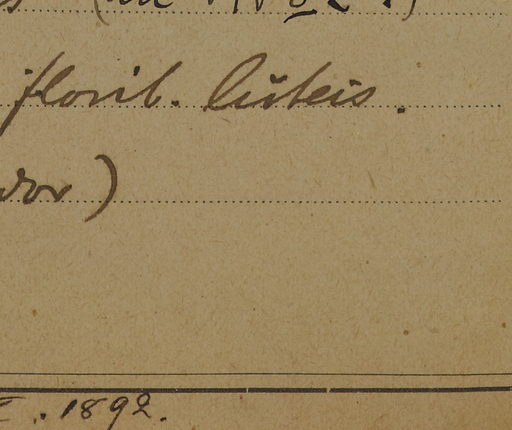 florib. luteis.
dor)
. 1892.